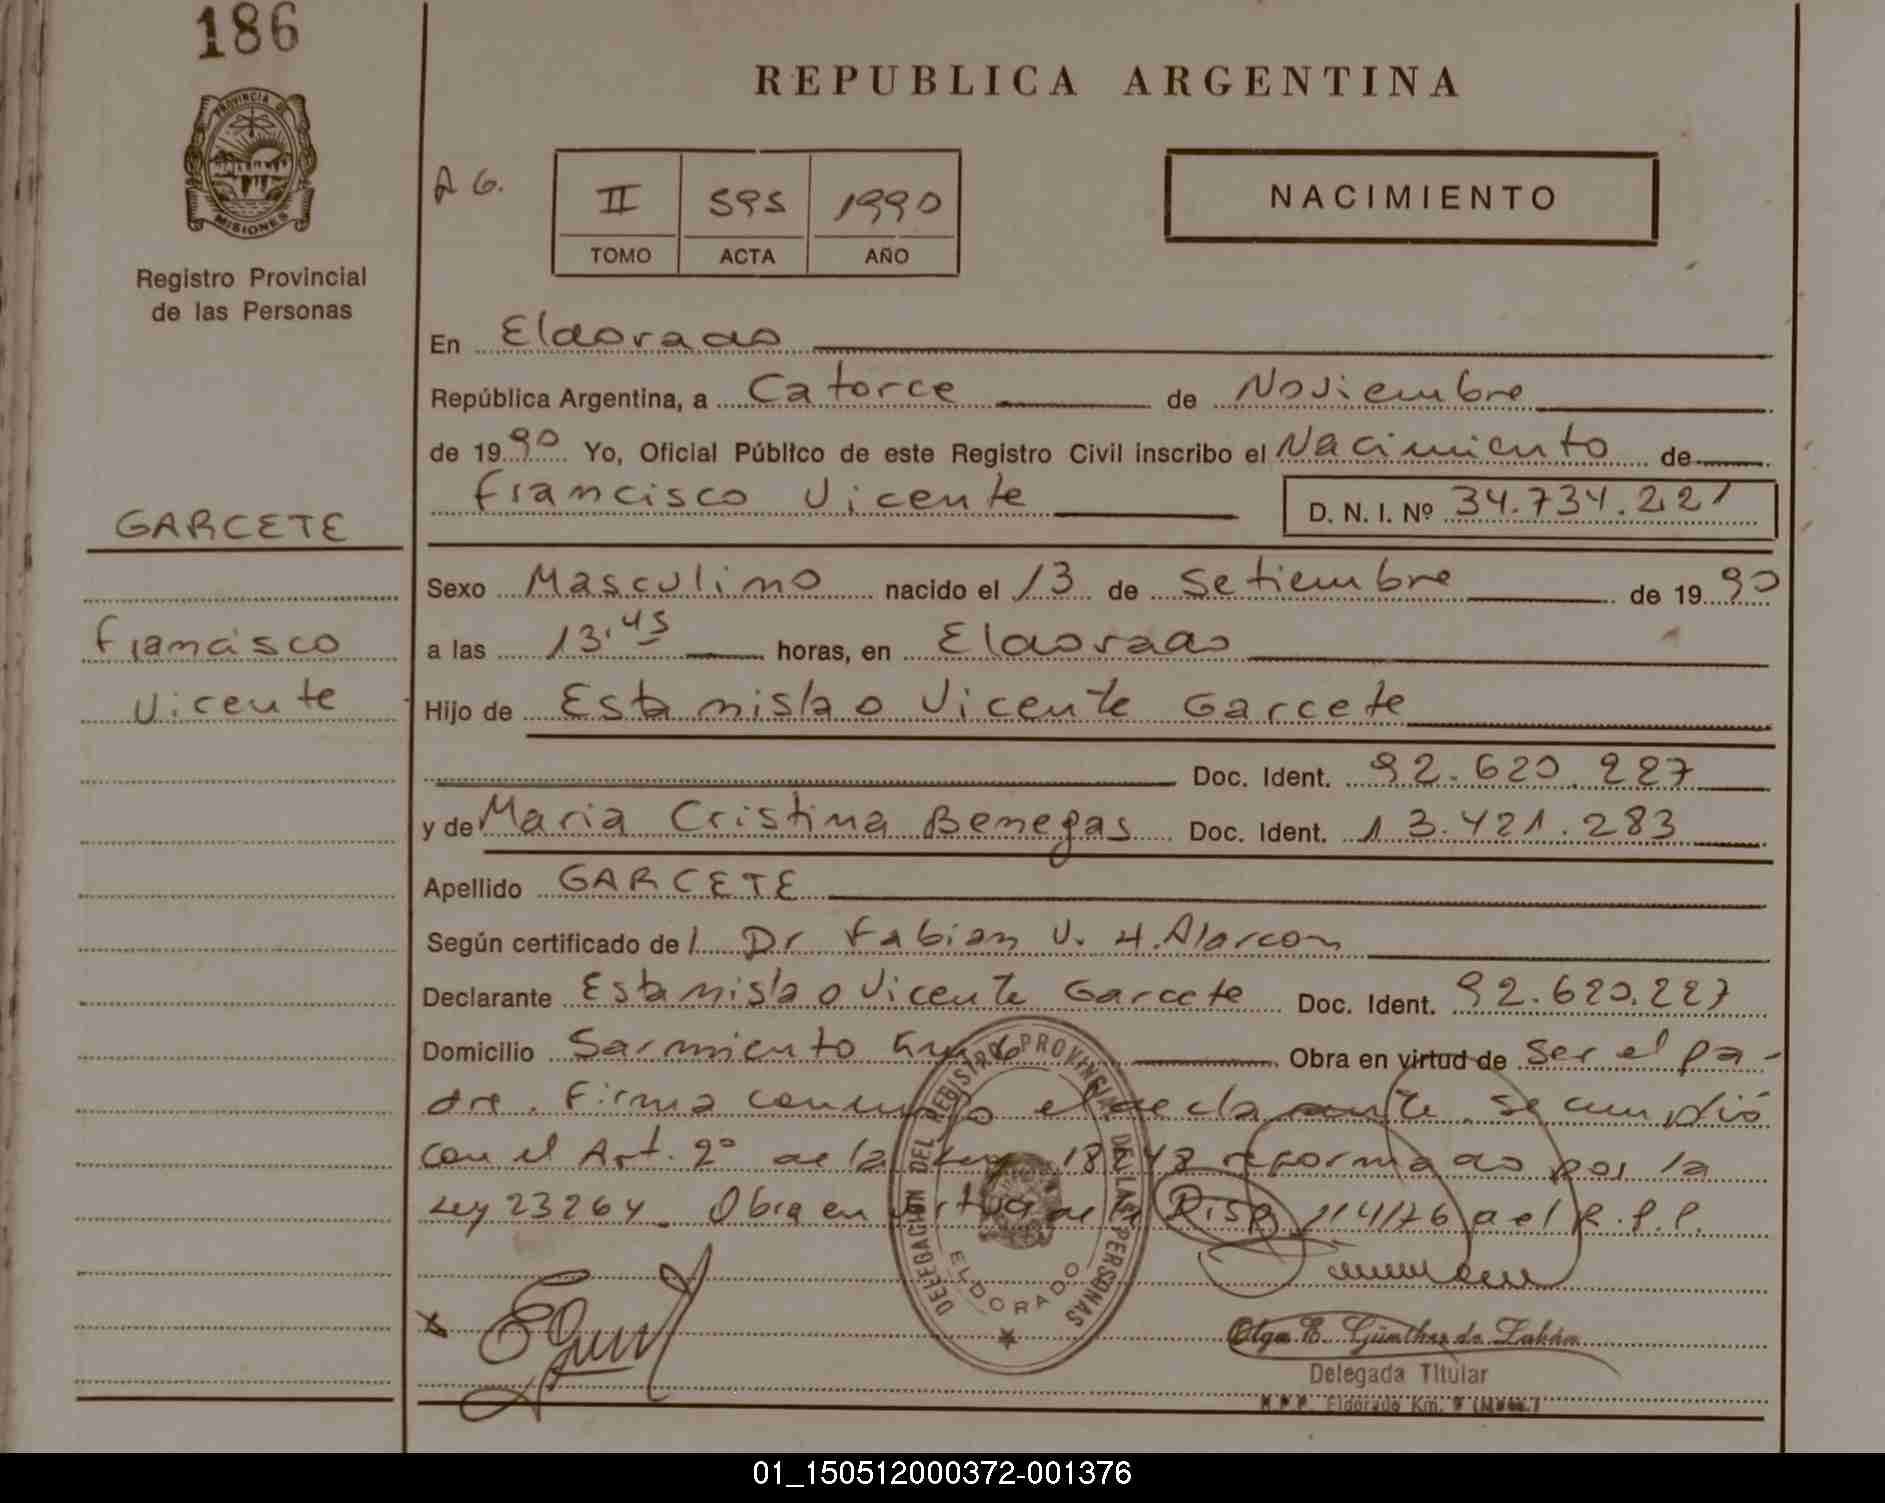 186
PROVINCIA DE
MISIONES
Registro Provincial
de las Personas
REPUBLICA ARGENTINA
A G.
II 595 1990
TOMO ACTA AÑO
NACIMIENTO
En Eldorado
República Argentina, a Catorce de Noviembre
de 1990 Yo, Oficial Público de este Registro Civil inscribo el Nacimiento de
Francisco Vicente D. N. I. Nº 34.734.221
GARCETE
Francisco
Vicente
Sexo Masculino nacido el 13 de Setiembre de 1990
a las 13.45 horas, en Eldorado
Hijo de Estanislao Vicente Garcete
Doc. Ident. 92.620.227
y de Maria Cristina Benegas Doc. Ident. 13.421.283
Apellido GARCETE
Según certificado del Dr Fabian V. H. Alarcon
Declarante Estanislao Vicente Garcete Doc. Ident. 92.620.227
Domicilio Sarmiento Obra en virtud de ser el pa-
dre. Firma conmigo el declarante. se cumplió
con el Art. 2º de la Ley 18248 reformado por la
Ley 23264. Obra en virtud de la Disp. 114/76 del R.P.P.
DELEGACION DEL REGISTRO PROVINCIAL DE LAS PERSONAS
ELDORADO
Olga E. Günther de Zakka
Delegada Titular
R.P.P. Eldorado Km. 9 (Mnes.)
01_150512000372-001376